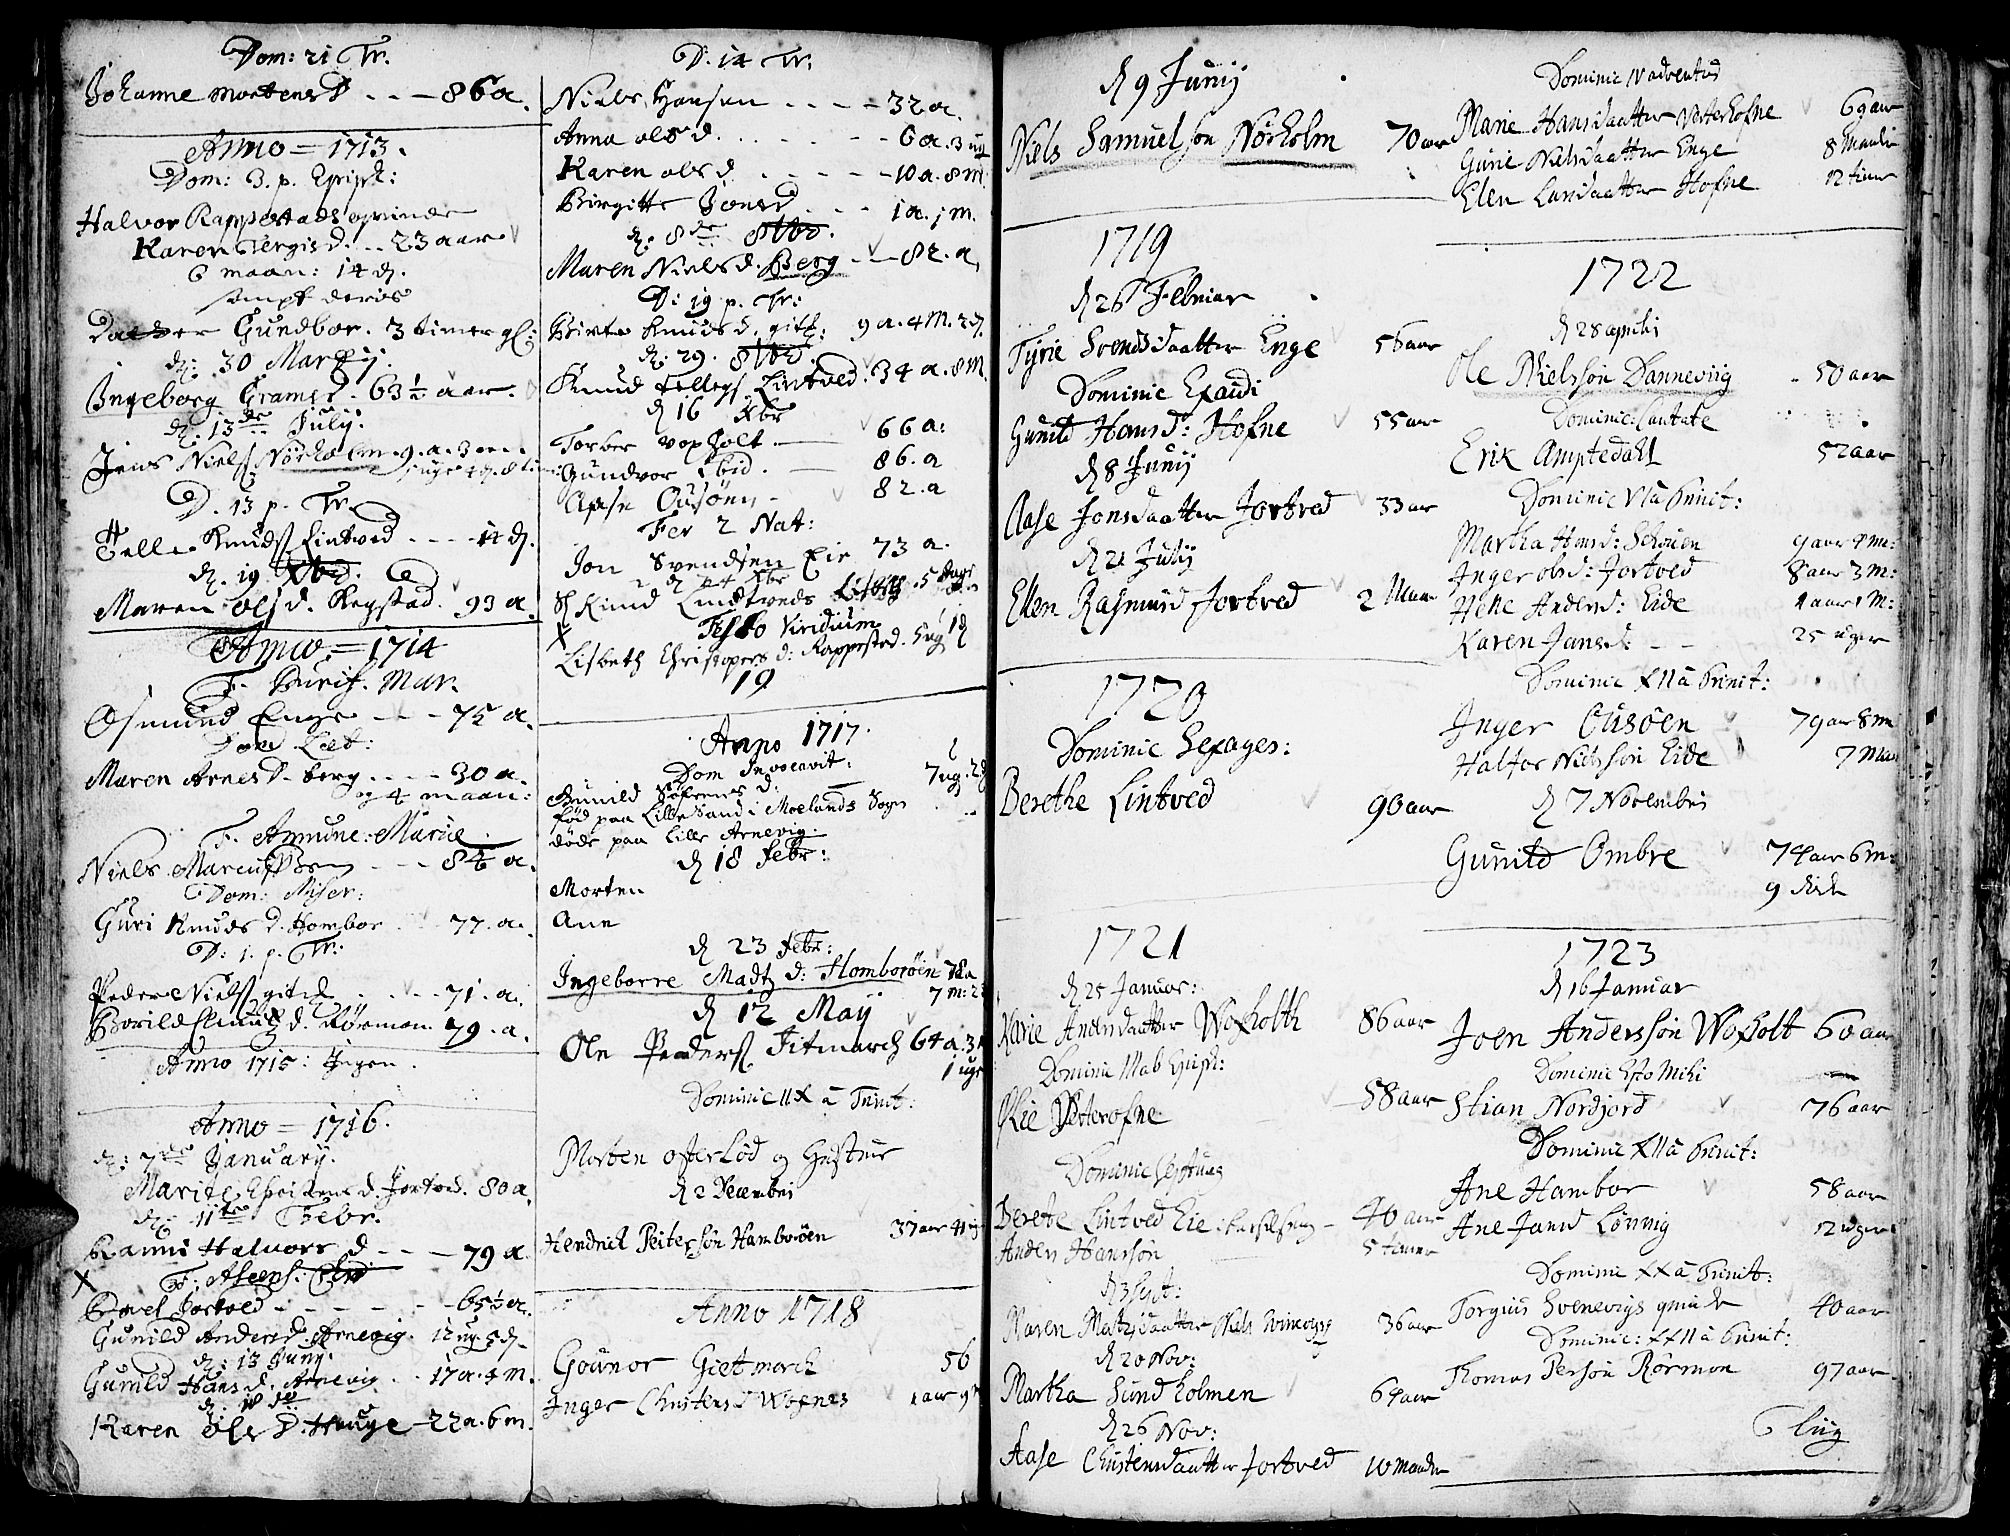 Dom: 21 Tr.
Johanne Mortens D - - - 86 a.
Anno = 1713.
Dom: 3. p. Epiph:
Halvor Rappestads qvinde
Karen Tergis d. - - 23 aar
6 maan: 14 d.
sampt deris
Daatter Gundbor. 3 timer gl:
d: 30 Martij.
Ingeborg Grams d. 63 ½ aar.
d: 13de July.
Jens Niels Nörholm. 9. a. 3
D. 13 p. Tr.
Telle Knuds Lintved - - - - 14 d.
d. 19
Maren Ols d. Regstad. 93 a.
Anno = 1714
F. Purif. Mar.
Osmund Enge - - - 75 a.
Dom Læt:
Maren Arnes D. berg - - - - 30 a.
og 4 maan:
F. Anunc: Mariæ
Niels Marcussen - - - 84 a.
Dom: Miser:
Guri Knuds d. Hombor 77. a.
D: 1. p. Tr:
Peder Niels - - - 71. a.
Knuds d. Rörmon 79. a.
Anno 1715: Ingen.
Anno = 1716.
d: 7de January.
Marite Christens d. Jortved. 80 a.
d: 11te Febr.
Ranni Halvors d - - - 79 a.
X F: Ascens:
Povel Jortved - - - - - - 65 ½ a.
Gunild Anders d. Arnevig. 12 ug. 5 d.
d: 13 Juny.
Gunild Hans d. Arnevig - - 17 a. 4 m.
Karen Ols D. Hauge - 22 a. 6 m.
D: 14 Tr:
Niels Hansen - - - - 32 a.
Anna Ols d. - - - - 6 a. 3 ug
Karen Ols d - - - - - 10 a. 8 m.
Birgitte Jens d - - - 1 a. 1 m.
d: 8de 8bd.
Maren Niels d. Berg - - 82. a.
D: 19 p. Tr:
Birte Knuds d. 9 a. 4 M. 2 d.
d: 29. 8bd.
Knud Tellegs Lintved. 34 a. 8 M.
d 16 Xbr
Torber Voxholt - 66 a:
Gundvor Ibid. - 86. a
Aase Ousöen - 82. a
Fer 2 Nat:
Jon Svendsen Eie 73 a.
d 24 Xbr
X
Lisbeth Christopers d: Rappested. 5 ug 1 d
19
Anno 1717.
Dom Invocavit:
Gunild Sörens d: 7 ug. 2 d
fød paa Lillesand i Moelands Sogn
døde paa Lille Arnevig.
d 18 Febr:
Morten
Ane
d 23 Febr:
Ingeborre Madtz d: Homborøen 78 a
7 m: 2
d 12 Maij
Ole Peders Fitmarch 64 a. 3
1 uge
Dominic IIX a Trinit:
Morten
d 2 Decembri
Hendrich Peitersön Hamborøen 37 aar
Anno 1718
Gounor Gietmarch 56
Inger Christens d Wofnes 1 aar 9 m
d 9 Junij
Niels Samuelsøn Nörholm 70 aar
1719
d 26 Februar
Tyrie Svends daatter Enge 56 aar
Dominic Exaudi
Gunild Hans d: Hofne 55 aar
d 8 Junij
Aase Jons daatter Jortved 33 aar
d 21 Julij
Ellen Rasmus d Jortved 2 Maan
1720
Dominic Sexages:
Berethe Lintved 90 aar
1721
d 25 Januar:
Karie Anders daatter Woxholth 86 aar
Dominic II ab Epiph:
Vesterofne 58 aar
Dominic Septuag
Berete Lintved Eie 40 aar
Anders Hansön 5 timer
d 3 Sept:
Maren Matzdaatter 36 aar
d 20 Nov:
Martha Sundholmen 64 aar
d 26 Nov:
Aase Christensdaatter Jortved 10 maaned
Dominic IV adventus
Marie Hansdaatter Vesterhofne 69 aar
Gurie Nielsdaatter Enge 8 Maan
Elen Larsdaatter Hofne 12 timer
1722
d 28 aprilis
Ole Nielssön Dannevig 50 aar
Dominic: Cantate
Erik Amptedahl 52 aar
Dominic VI a Trinit:
Martha Hans d: 9 aar
Inger Ols d: Jortved 8 aar 3 m:
Helle Anders d: Eide 1 M:
Karen Jans d: - - 25 uger
Dominic XII a Trinit:
Inger Ousøen 79 aar 8 m
Halfor Nielssön Eide 7 Maan
d 7 Novembri
Gunild Ombre 74 aar 6 m:
9
1723
d 16 Januar
Joen Anderssön Woxholt 60 aar
Dominic Esto Mihi
Stian Nordjord 76 aar
Dominic XII a Trinit:
Ane Hambor 58 aar
Ane Jans d Lönnig 12 uger
Dominic XX a Trinit:
Torguis Svenevigs qvinde 40 aar
Dominic: XXII a Trinit:
Thomas Persön Rörmon 97 aar